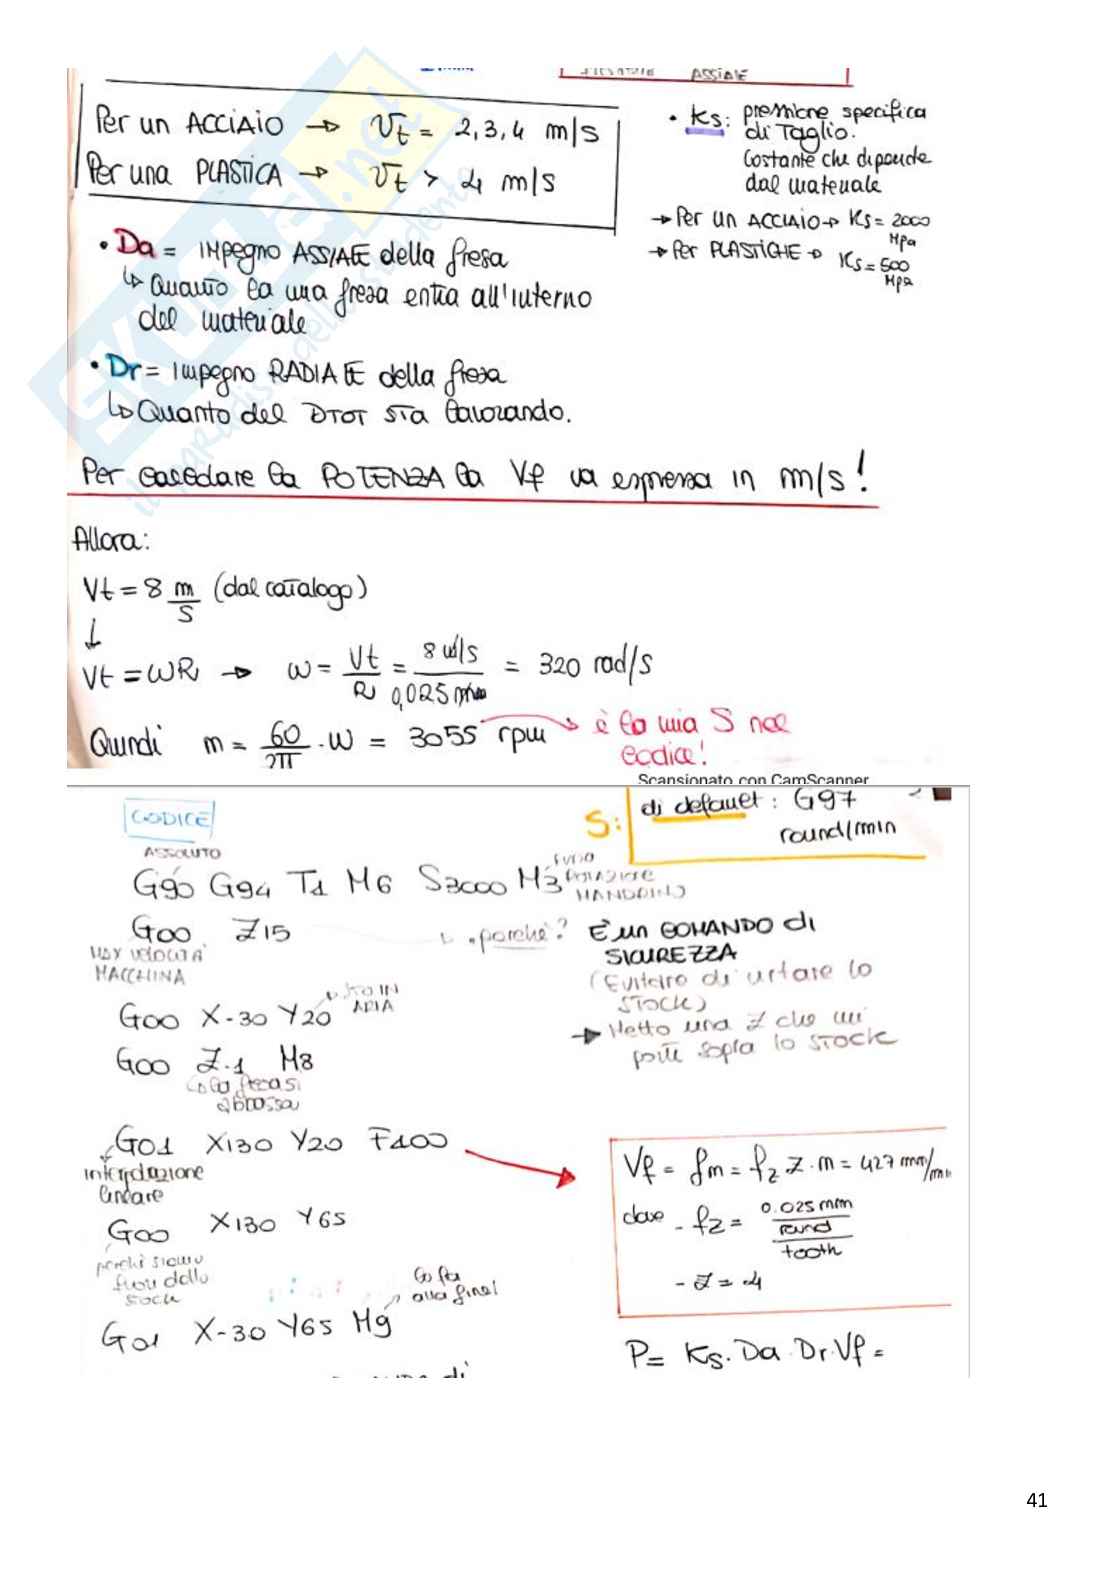 ASSIALE
Per un ACCIAIO → Vt = 2,3,4 m/s
Per una PLASTICA → Vt > 4 m/s
• Ks: pressione specifica
di Taglio.
Costante che dipende
dal materiale
→ Per un ACCIAIO → Ks = 2000
MPa
→ Per PLASTICHE → Ks = 500
MPa
• Da = IMPEGNO ASSIALE della fresa
↳ Quanto la mia fresa entra all'interno
del materiale
• Dr = Impegno RADIALE della fresa
↳ Quanto del DTOT sta lavorando.
Per calcolare la POTENZA la Vf va espressa in m/s!
Allora:
Vt = 8 m/s (dal catalogo)
↓
Vt = ωR → ω = Vt/R = 8 m/s / 0,025 = 320 rad/s
Quindi n = 60/2π · ω = 3055 rpm → è la mia S nel
codice!
Scansionato con CamScanner
CODICE
S: di default: G97
round/min
ASSOLUTO
G90 G94 T1 M6 S3000 M3
ROTAZIONE
MANDRINO
G00 Z15
↳ perché? È un COMANDO di
SICUREZZA
(Evitare di urtare lo
STOCK)
→ Metto una Z che mi
porti sopra lo STOCK
MAX VELOCITÀ
MACCHINA
G00 X-30 Y20
↳ STO IN
ARIA
G00 Z-1 M8
↳ la fresa si
abbassa
G01 X130 Y20 F400
interpolazione
lineare
Vf = fn = fz Z · n = 427 mm/min
dove - fz = 0.025 mm / round / tooth
- Z = 4
G00 X130 Y65
perché sicuro
fuori dallo
stock
G01 X-30 Y65 M9
Lo fa
alla fine!
P = Ks · Da · Dr · Vf =
41